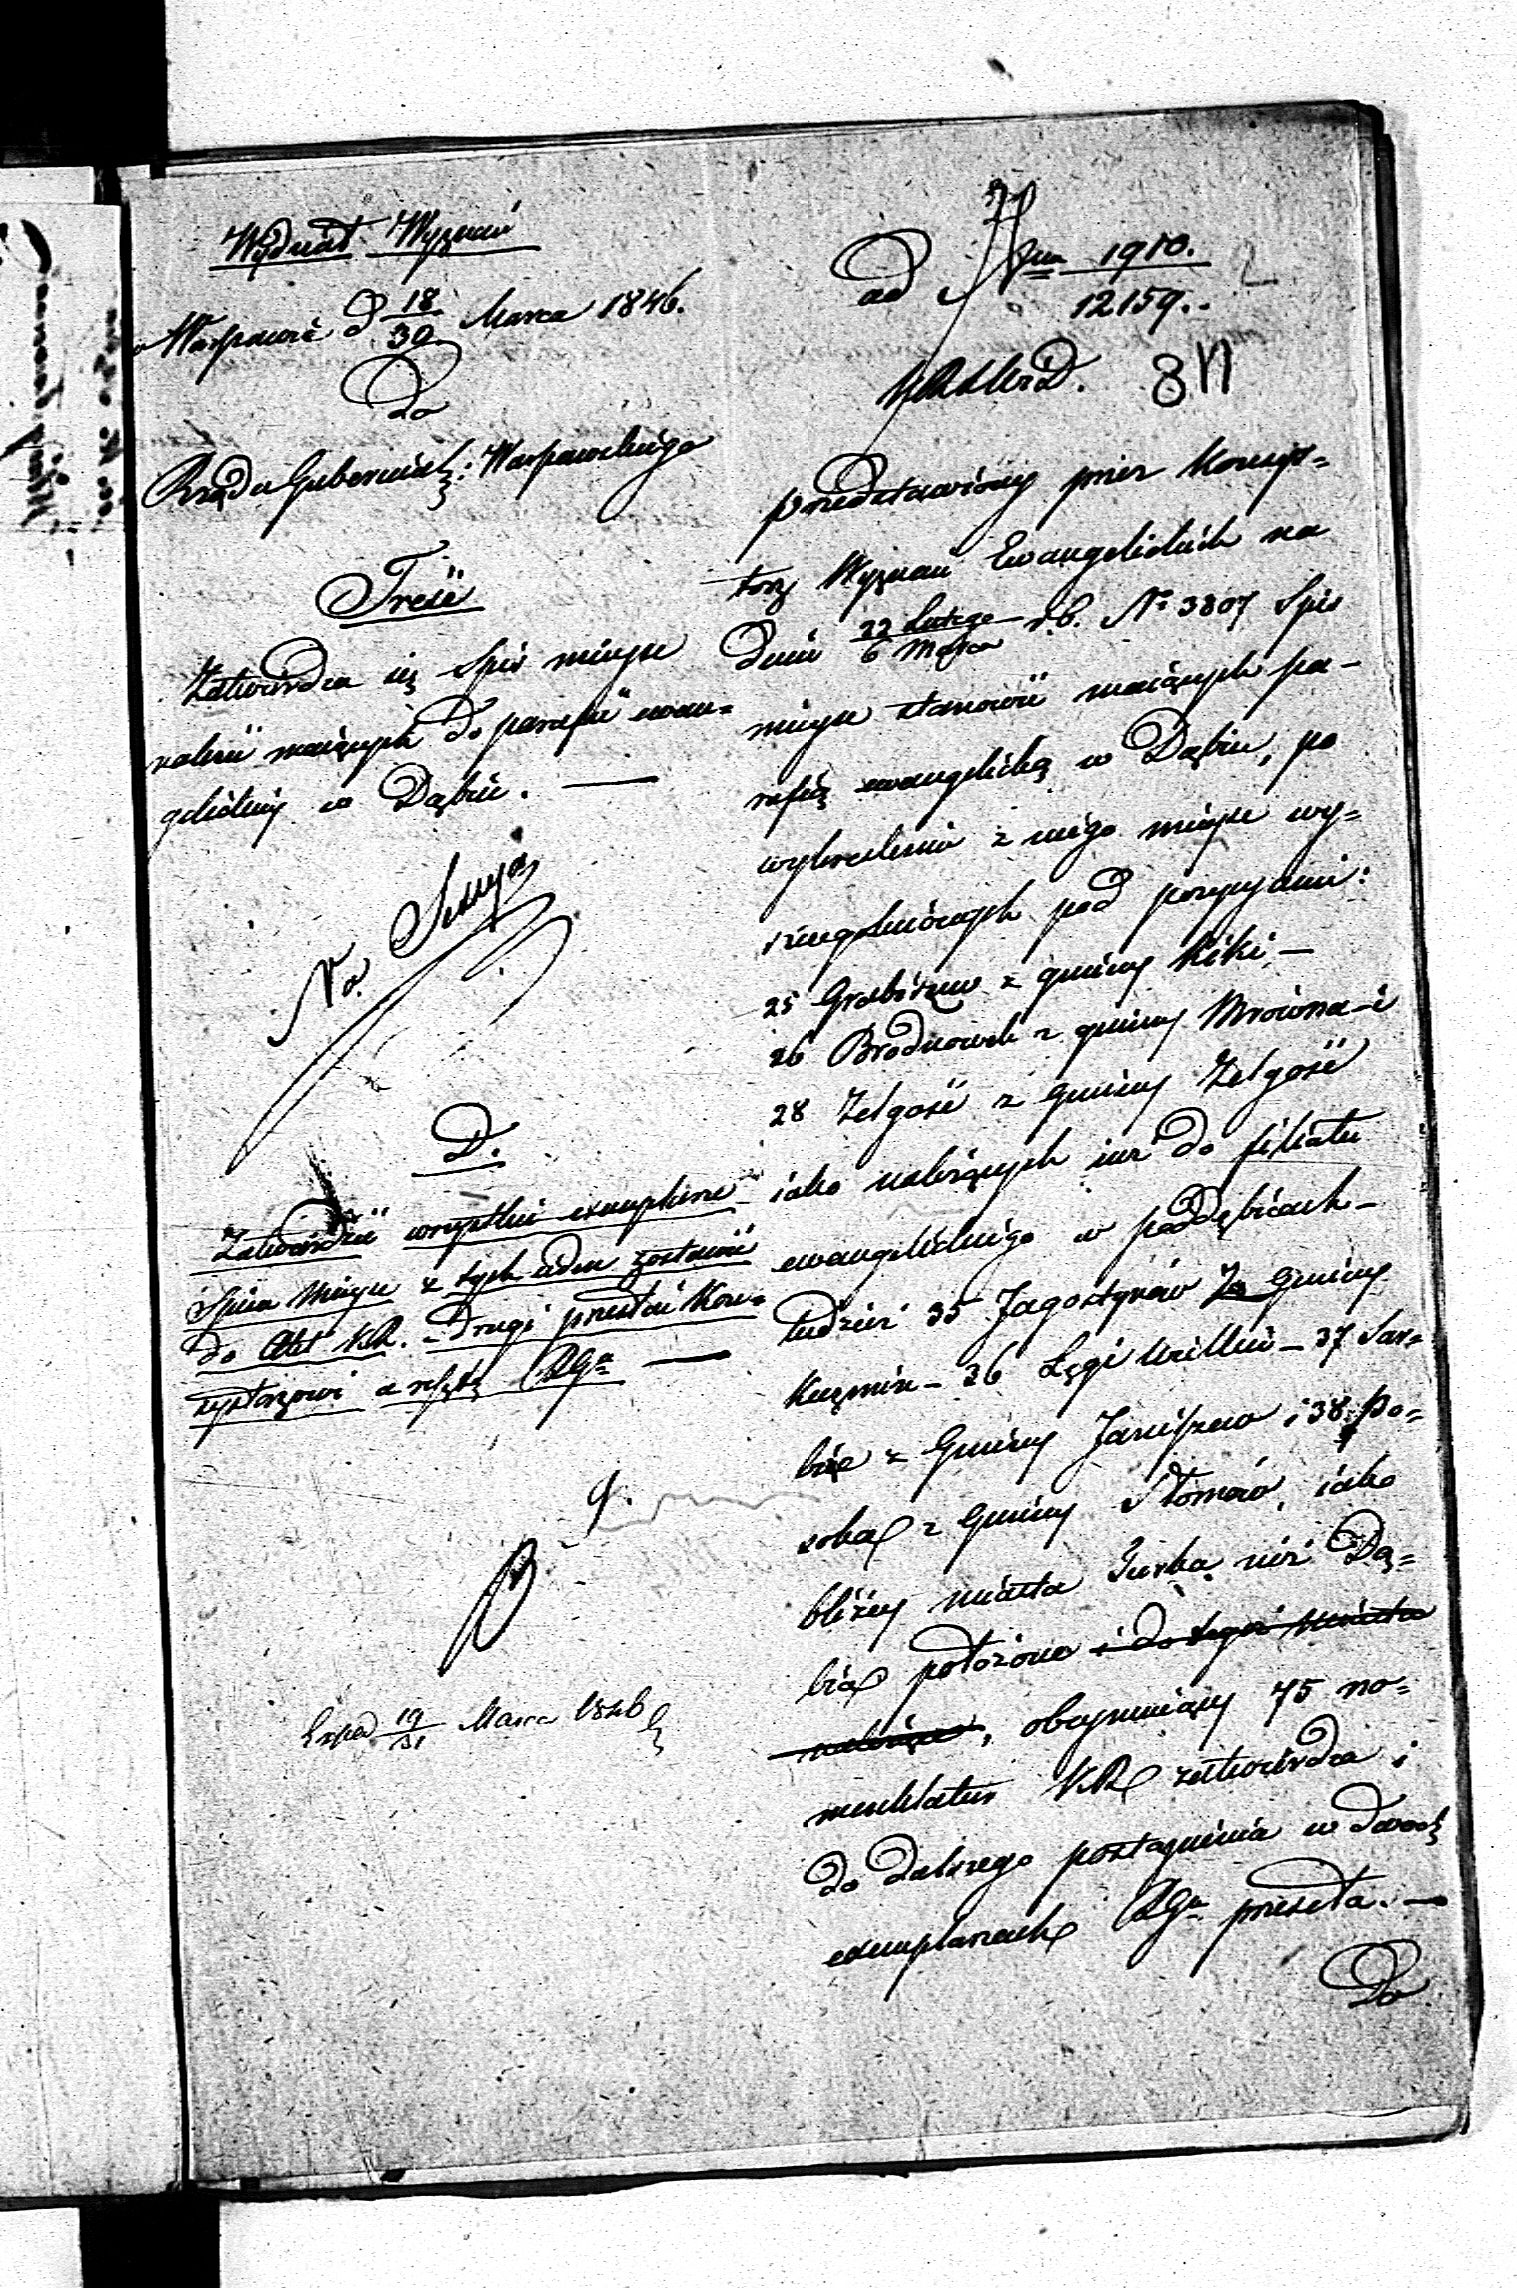 Wydział Wyznań
w Warszawie d 18/30 Marca 1846.
Do
Rządu Gubernial: Warszawskiego
Treść
Zatwierdza się Spis mieysc
należeć maiących do parafii ewan=
gelickiey w Dąbiu. —
No.
D.
Zatwierdzić wszystkie exemplarze
Spisu Mieysc z tych ieden zostawić
do Akt KR. - drugi przesłać Kon=
systorzowi a resztę RGu —
Exped 19/31 Marca 1846
ad N 1910.
12159.
811
przedstawiony przez Konsys=
torz Wyznań Ewangelickich na
dniu 22 Lutego/6 Marca r.b. No 3807 Spis
mieysc stanowić maiących pa-
rafią ewangelicką w Dąbiu, po
wykreśleniu z niego mieysc wy=
szczególnionych pod pozycyami:
25 Grabiszew z gminy Kiki —
26 Brodnówek z gminy Mrowna - i
28 Zelgość z Gminy Zelgość
iako należących iuż do filiału
ewangelickiego w poddębicach -
tudzież 35 Jagostynów z Gminy
Kuźmin - 36 Łęgi wielkie - 37 Sar=
bice z Gminy Janiszew i 38 Po=
soka z Gminy Słomów, iako
bliżey miasta Turka niż Dą=
bia położone i do tegoż Miasta
należące, obeymuiący 75 no=
menklatur KR zatwierdza i
do dalszego postąpienia w dwoch
exemplarzach RGu przeseła. —
Do